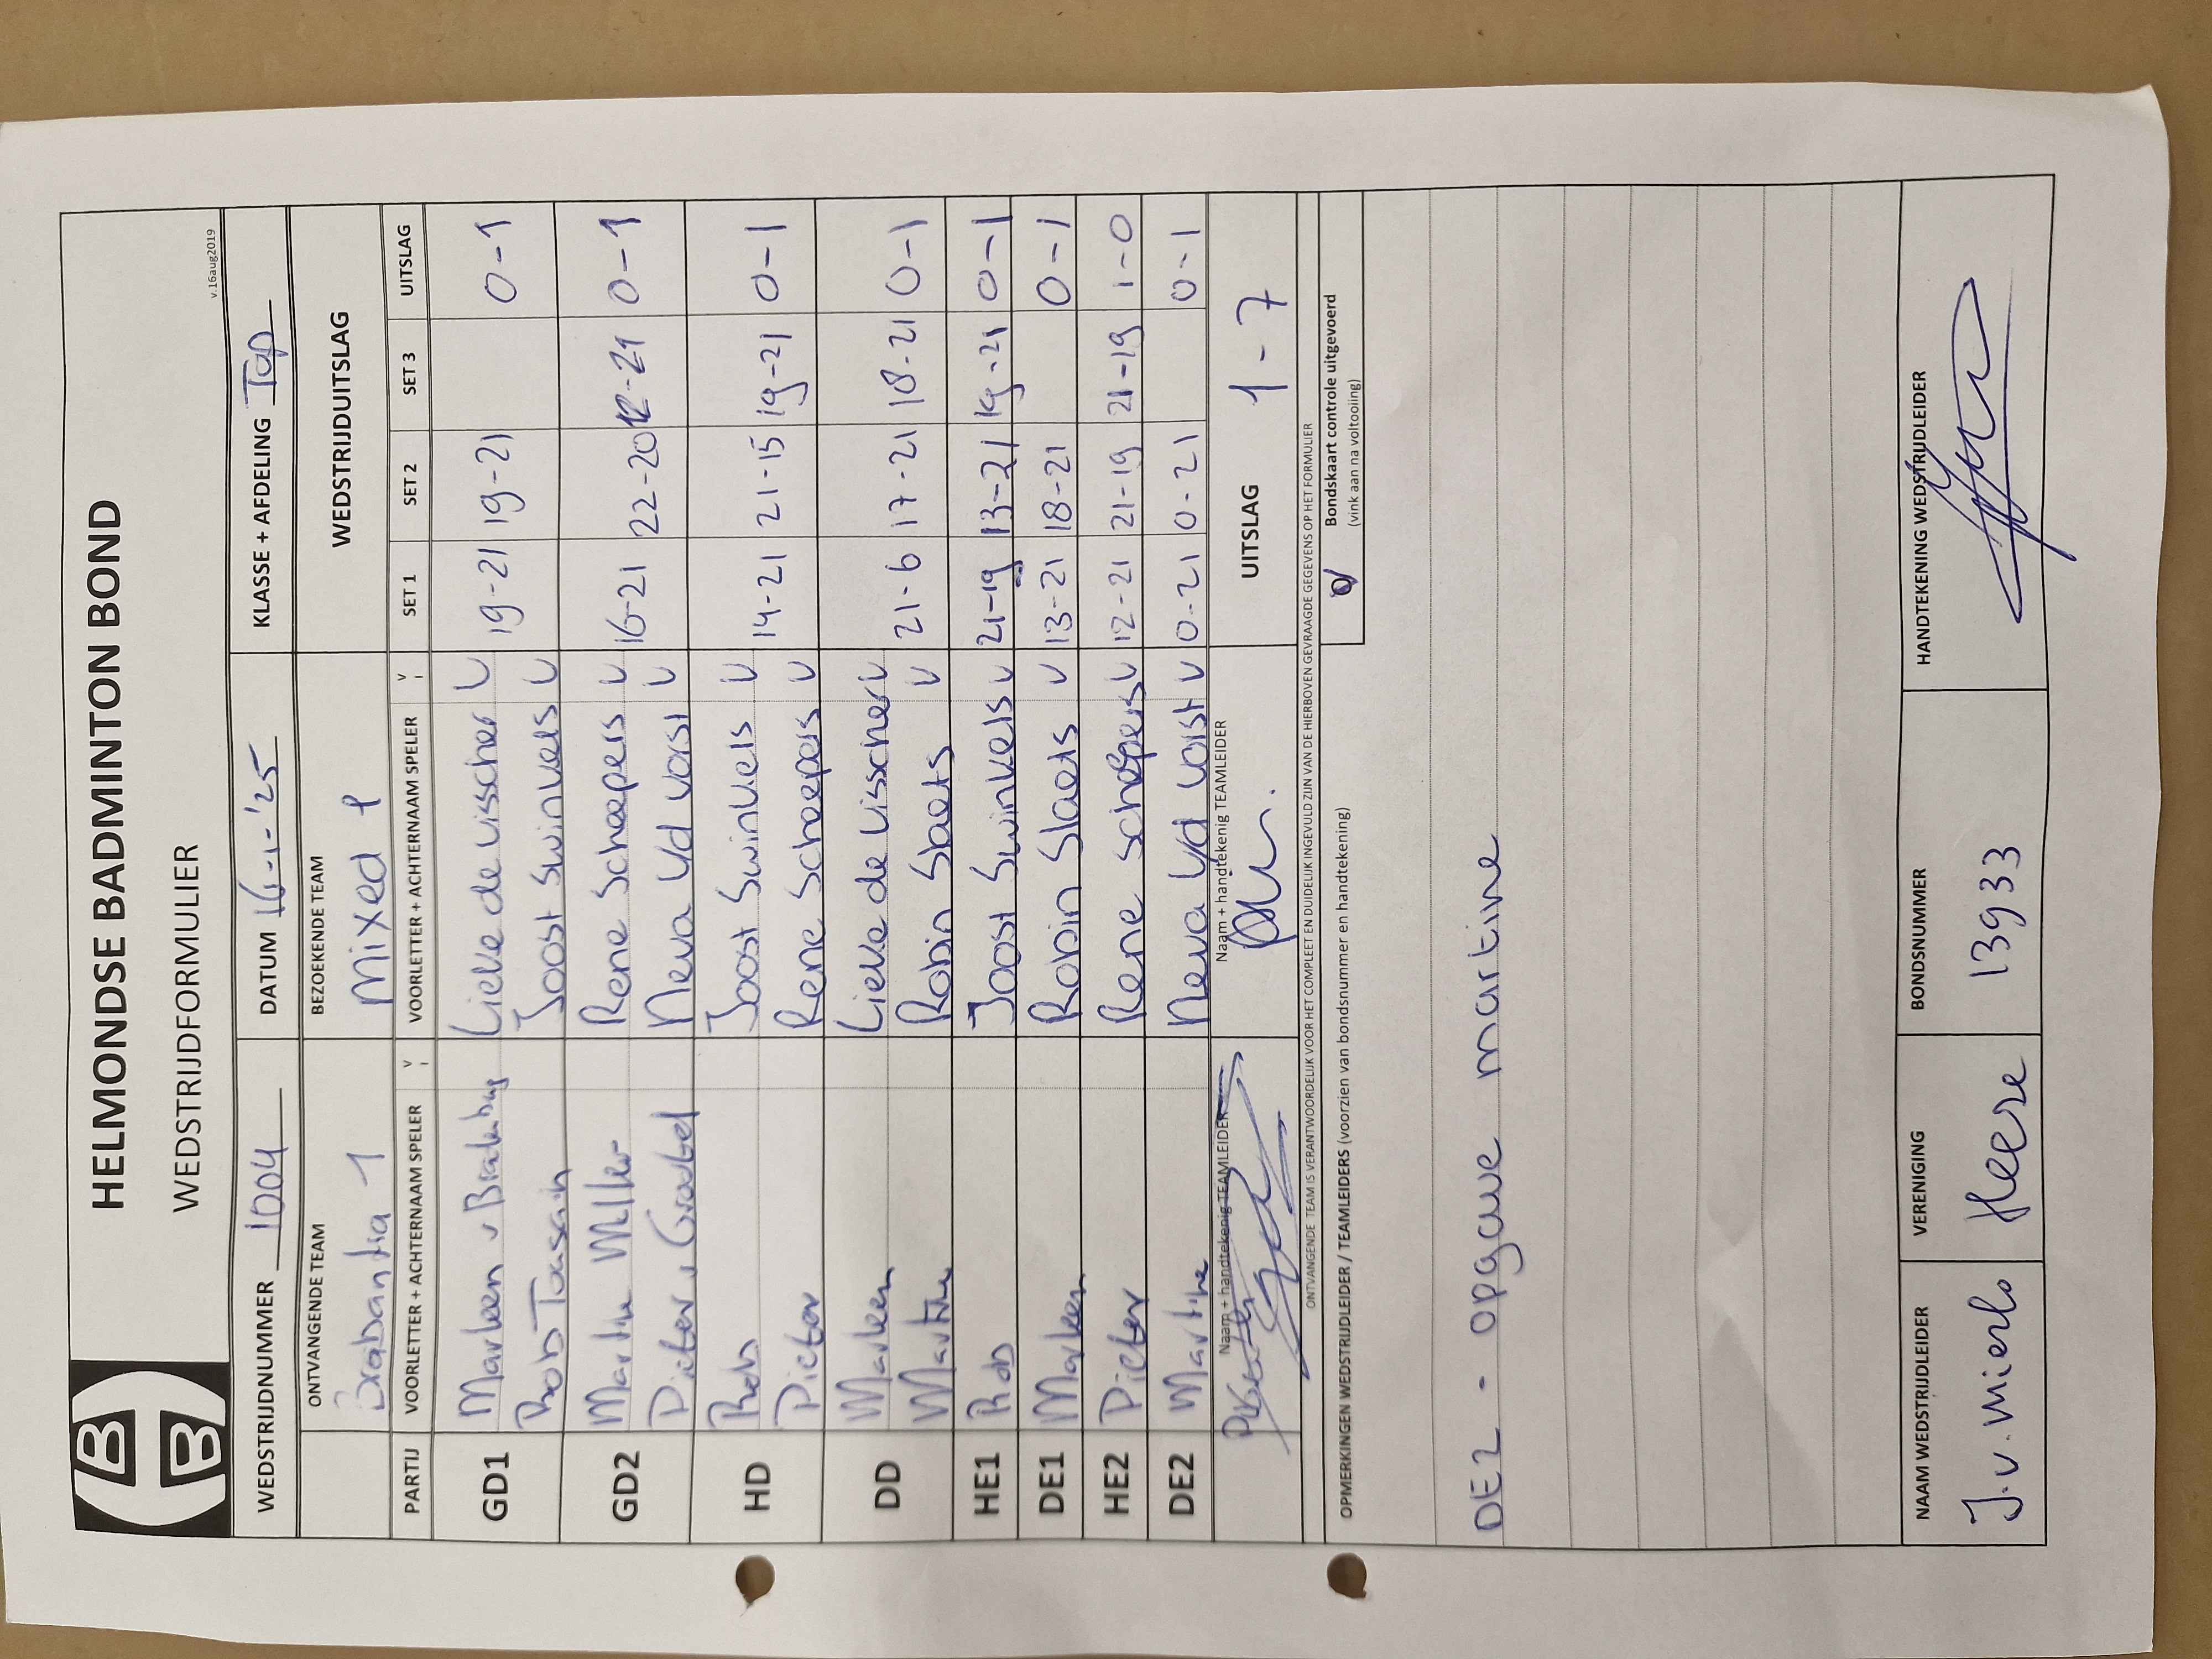 HELMONDSE BADMINTON BOND
WEDSTRIJDFORMULIER
v.16aug2019
WEDSTRIJDNUMMER 1004 DATUM 16-1-'25 KLASSE + AFDELING Top
ONTVANGENDE TEAM BEZOEKENDE TEAM WEDSTRIJDUITSLAG
Brabantia 1 Mixed 1
PARTIJ VOORLETTER + ACHTERNAAM SPELER V VOORLETTER + ACHTERNAAM SPELER V SET 1 SET 2 SET 3 UITSLAG
GD1 Marleen v Lieke de Visscher V 19-21 19-21 0-1
Rob Joost Swinkels V
GD2 Martine Miller Rene Scheepers V 16-21 22-20 12-21 0-1
Pieter v Neva vd Vorst V
HD Rob Joost Swinkels V 14-21 21-15 19-21 0-1
Pieter Rene Scheepers V
DD Marleen Lieke de Visscher V 21-6 17-21 18-21 0-1
Martine Robin Slaets V
HE1 Rob Joost Swinkels V 21-19 13-21 19-21 0-1
DE1 Marleen Robin Slaets V 13-21 18-21 0-1
HE2 Pieter Rene Scheepers V 12-21 21-19 21-19 1-0
DE2 Martine Neva vd Vorst V 0-21 0-21 0-1
Naam + handtekenig TEAMLEIDER Naam + handtekenig TEAMLEIDER UITSLAG 1-7
ONTVANGENDE TEAM IS VERANTWOORDELIJK VOOR HET COMPLEET EN DUIDELIJK INGEVULD ZIJN VAN DE HIERBOVEN GEVRAAGDE GEGEVENS OP HET FORMULIER
OPMERKINGEN WEDSTRIJDLEIDER / TEAMLEIDERS (voorzien van bondsnummer en handtekening)
Bondskaart controle uitgevoerd
(vink aan na voltooiing)
DE2 - opgave martine
NAAM WEDSTRIJDLEIDER VERENIGING BONDSNUMMER HANDTEKENING WEDSTRIJDLEIDER
J.v. Mierlo Heeze 13933